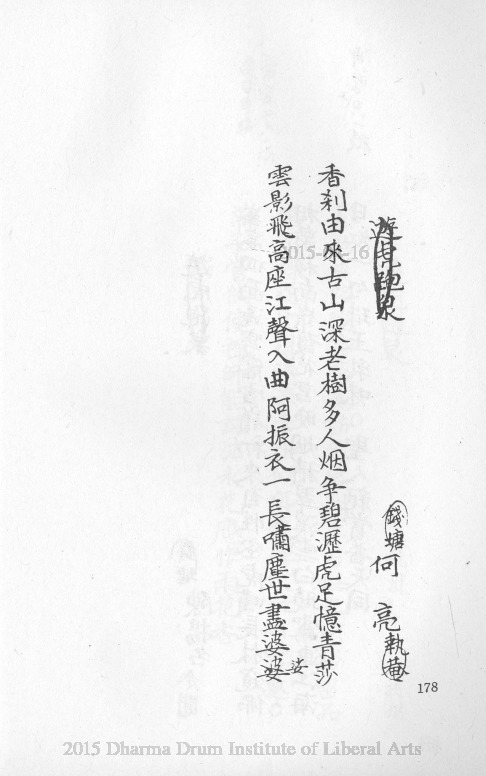 遊虎跑泉
錢塘 何亮 執菴
香刹由來古山深老樹多人烟爭碧瀝虎足憶青莎
雲影飛高座江聲入曲阿振衣一長嘯塵世盡婆婆
娑
178
2015 Dharma Drum Institute of Liberal Arts